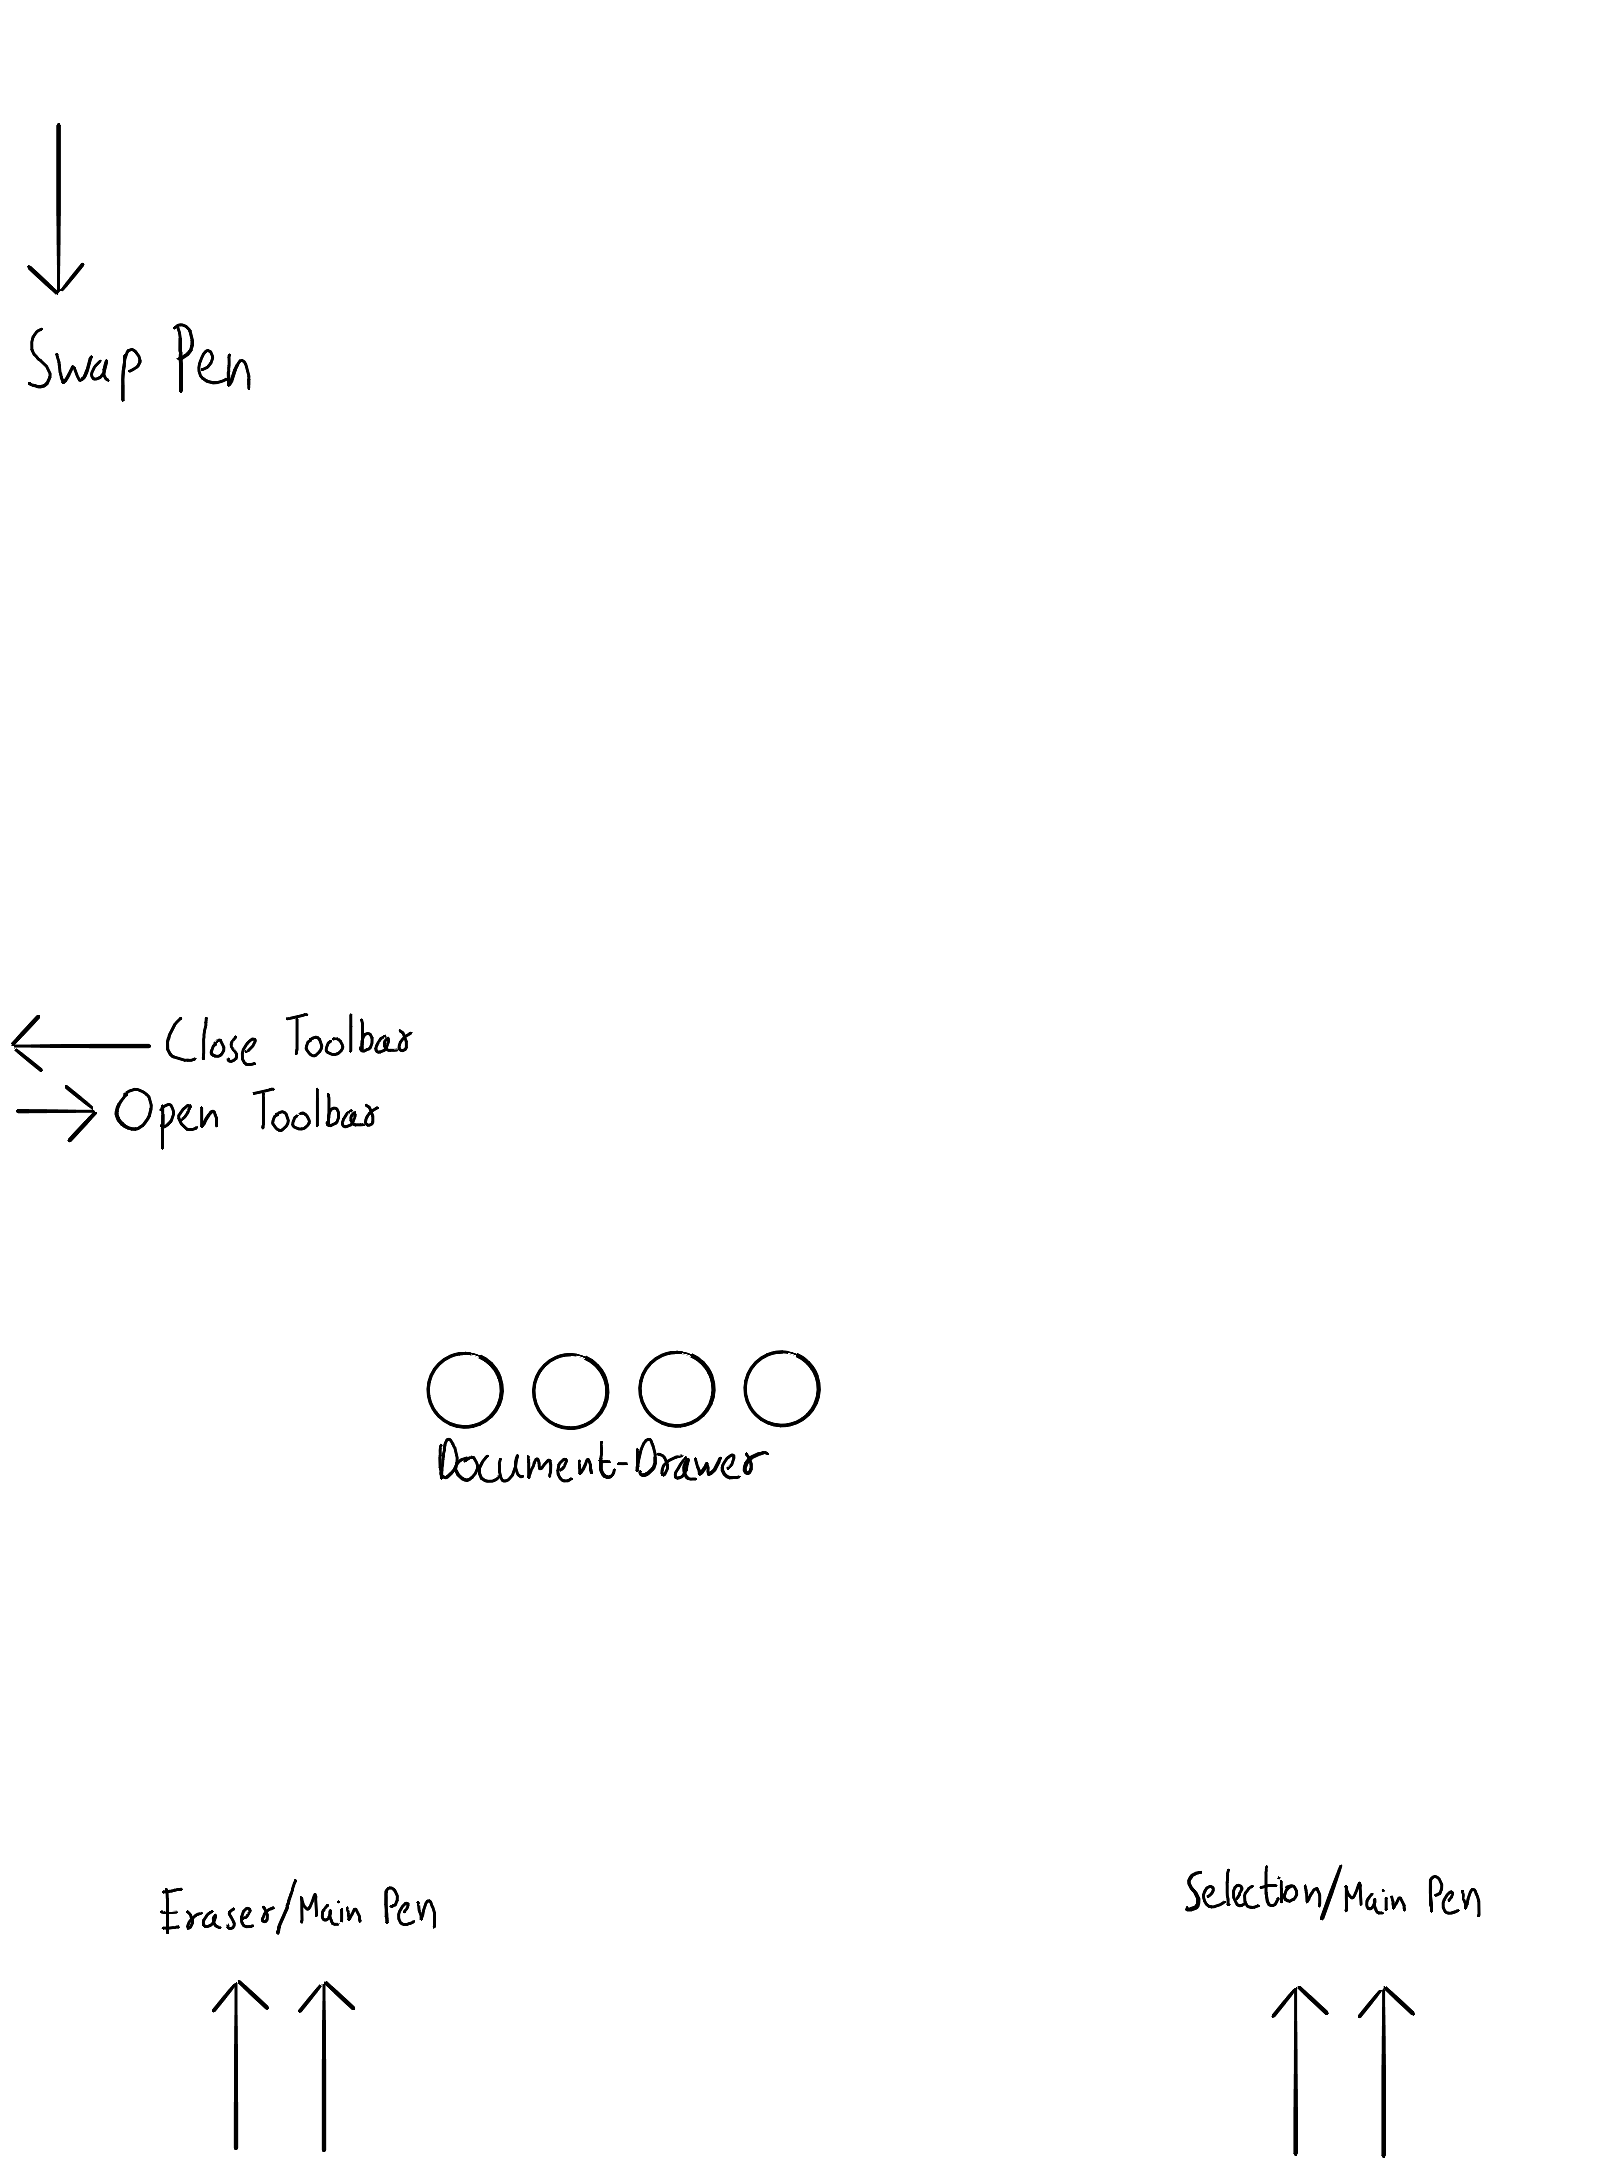 Swap Pen
Close Toolbar
Open Toolbar
Document-Drawer
Eraser/Main Pen
Selection/Main Pen